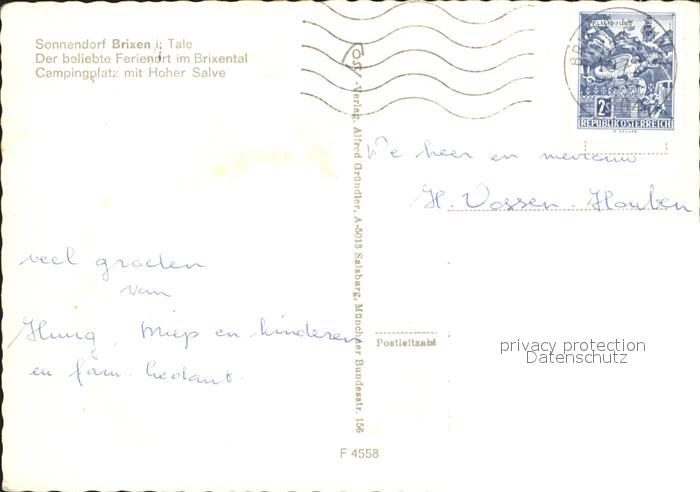 Sonnendorf Brixen i. Tale
Der beliebte Ferienort im Brixental
Campingplatz mit Hoher Salve
veel groeten
van
Miep en kinderen
en fam.
Ost-Verlag, Alfred Gründler, A-5013 Salzburg, Münchner Bundesstr. 156
KLAGENFURT
2S
REPUBLIK ÖSTERREICH
heer en mevrouw
H. Vossen-Houben
Postleitzahl
privacy protection
Datenschutz
F 4558